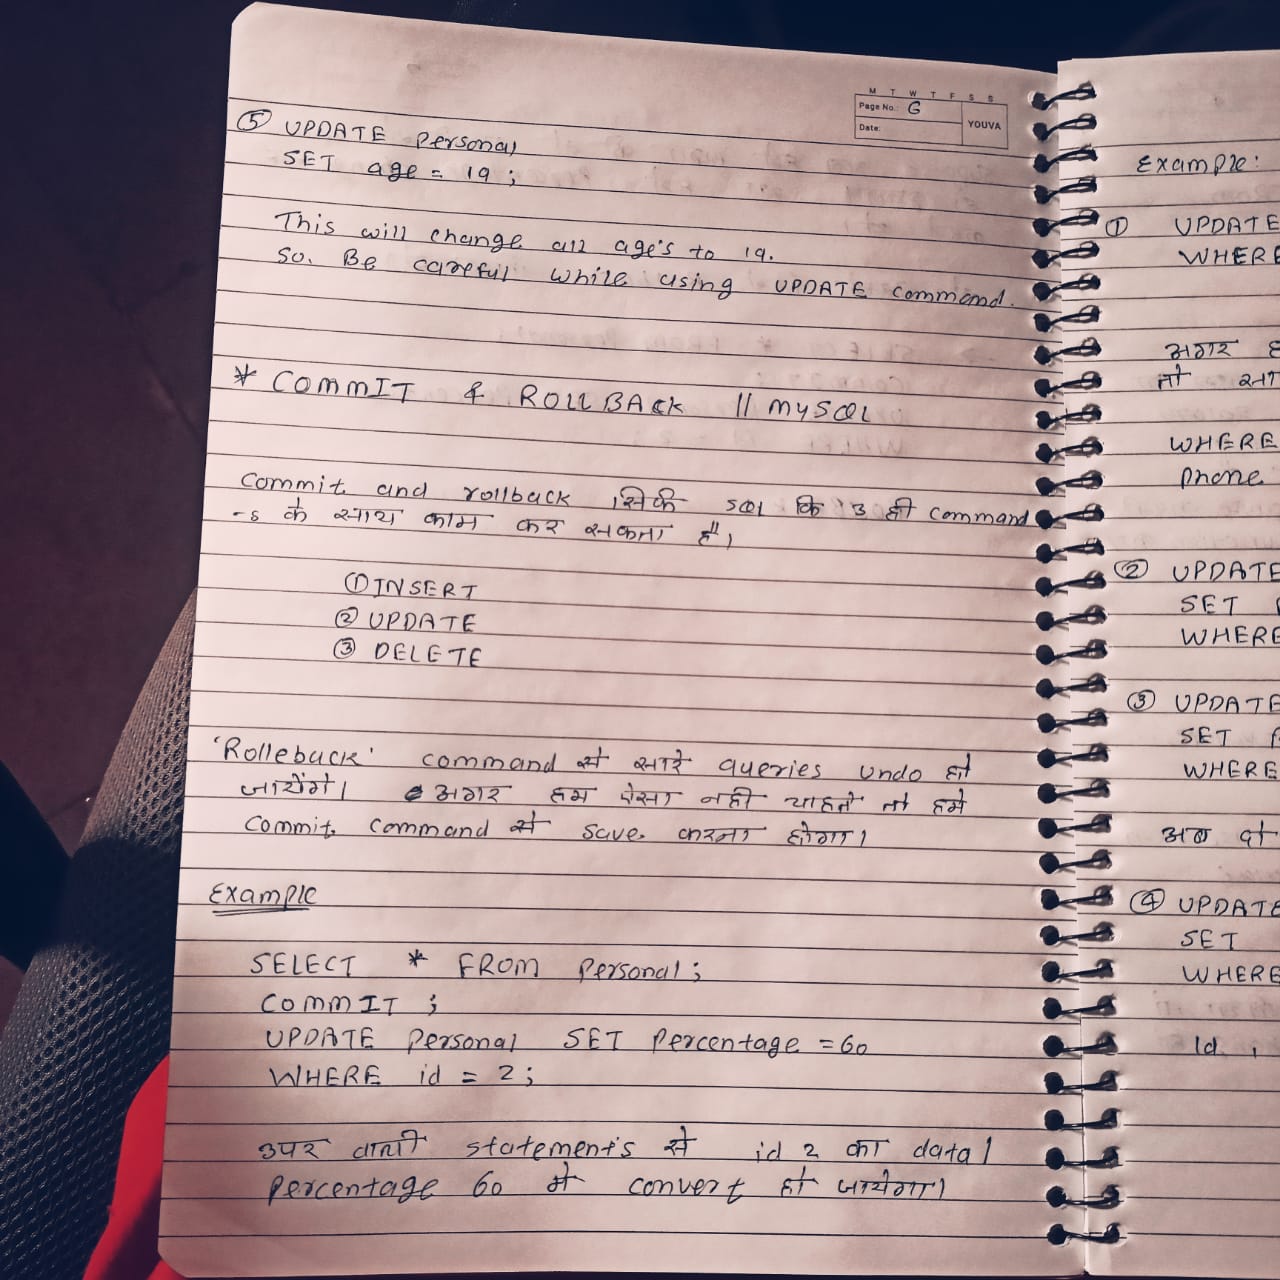 M T W T F S S
Page No.: 6
Date:
YOUVA
⑤ UPDATE Personal
SET age = 19 ;
This will change all age's to 19.
So. Be careful while using UPDATE command.
* COMMIT & ROLLBACK || MYSQL
Commit and rollback सिर्फ SQL कि 3 ही command
-s के साथ काम कर सकता है।
① INSERT
② UPDATE
③ DELETE
'Rolleback' command से सारे queries undo हो
जायेंगे। अगर हम ऐसा नही चाहते तो हमे
Commit command से save करना होगा।
Example
SELECT * FROM Personal ;
COMMIT ;
UPDATE Personal SET Percentage = 60
WHERE id = 2 ;
उपर वाली statement's से id 2 का data।
Percentage 60 मे convert हो जायेगा।
Example :
① UPDATE
WHERE
अगर
तो
WHERE
Phone
② UPDATE
SET
WHERE
③ UPDATE
SET
WHERE
अब
④ UPDATE
SET
WHERE
Id ,